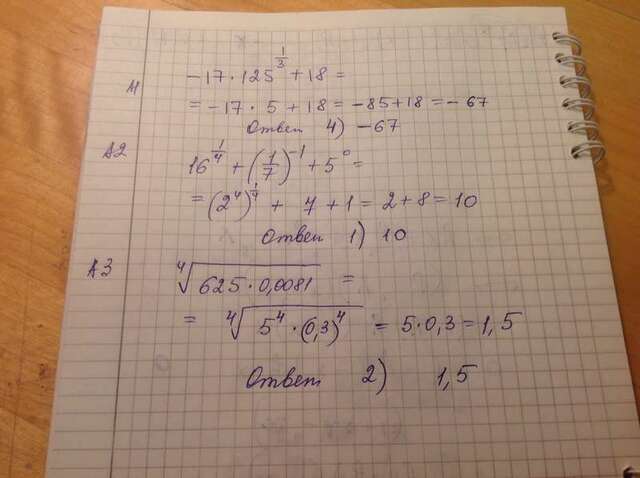 А1 -17 · 125^(1/3) + 18 =
= -17 · 5 + 18 = -85 + 18 = -67
Ответ 4) -67
А2 16^(1/4) + (1/7)^(-1) + 5^0 =
= (2^4)^(1/4) + 7 + 1 = 2 + 8 = 10
Ответ 1) 10
А3 ∜(625 · 0,0081) =
= ∜(5^4 · (0,3)^4) = 5 · 0,3 = 1,5
Ответ 2) 1,5